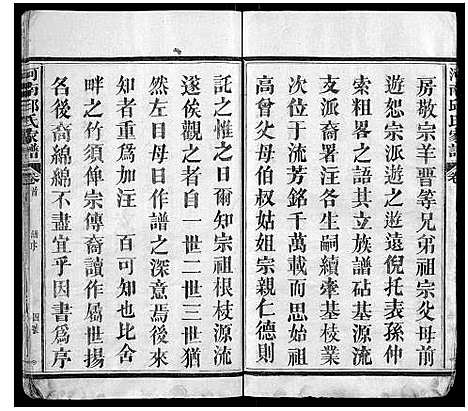 房敬宗羊晋等兄弟祖宗父母前
遊恕宗派遊之遊遠倪托表孫仲
索粗畧之語其立族譜砧基流
支派裔汪各生嗣續棗基枝業
次位于流芳銘千萬億年思思
高曾父母伯叔姑姐宗親仁德則
託之惟之日爾知宗祖根枝源流
遂俟觀之者自一世二世三世猶
然左日母日作譜之深意焉後
知者重為加注 百可知也比舍
畔之竹須俾宗傳裔讀作屬世揚
名後裔綿綿不盡宜乎因書爲序
河南邱氏家譜 卷首
河南邱氏家譜 卷